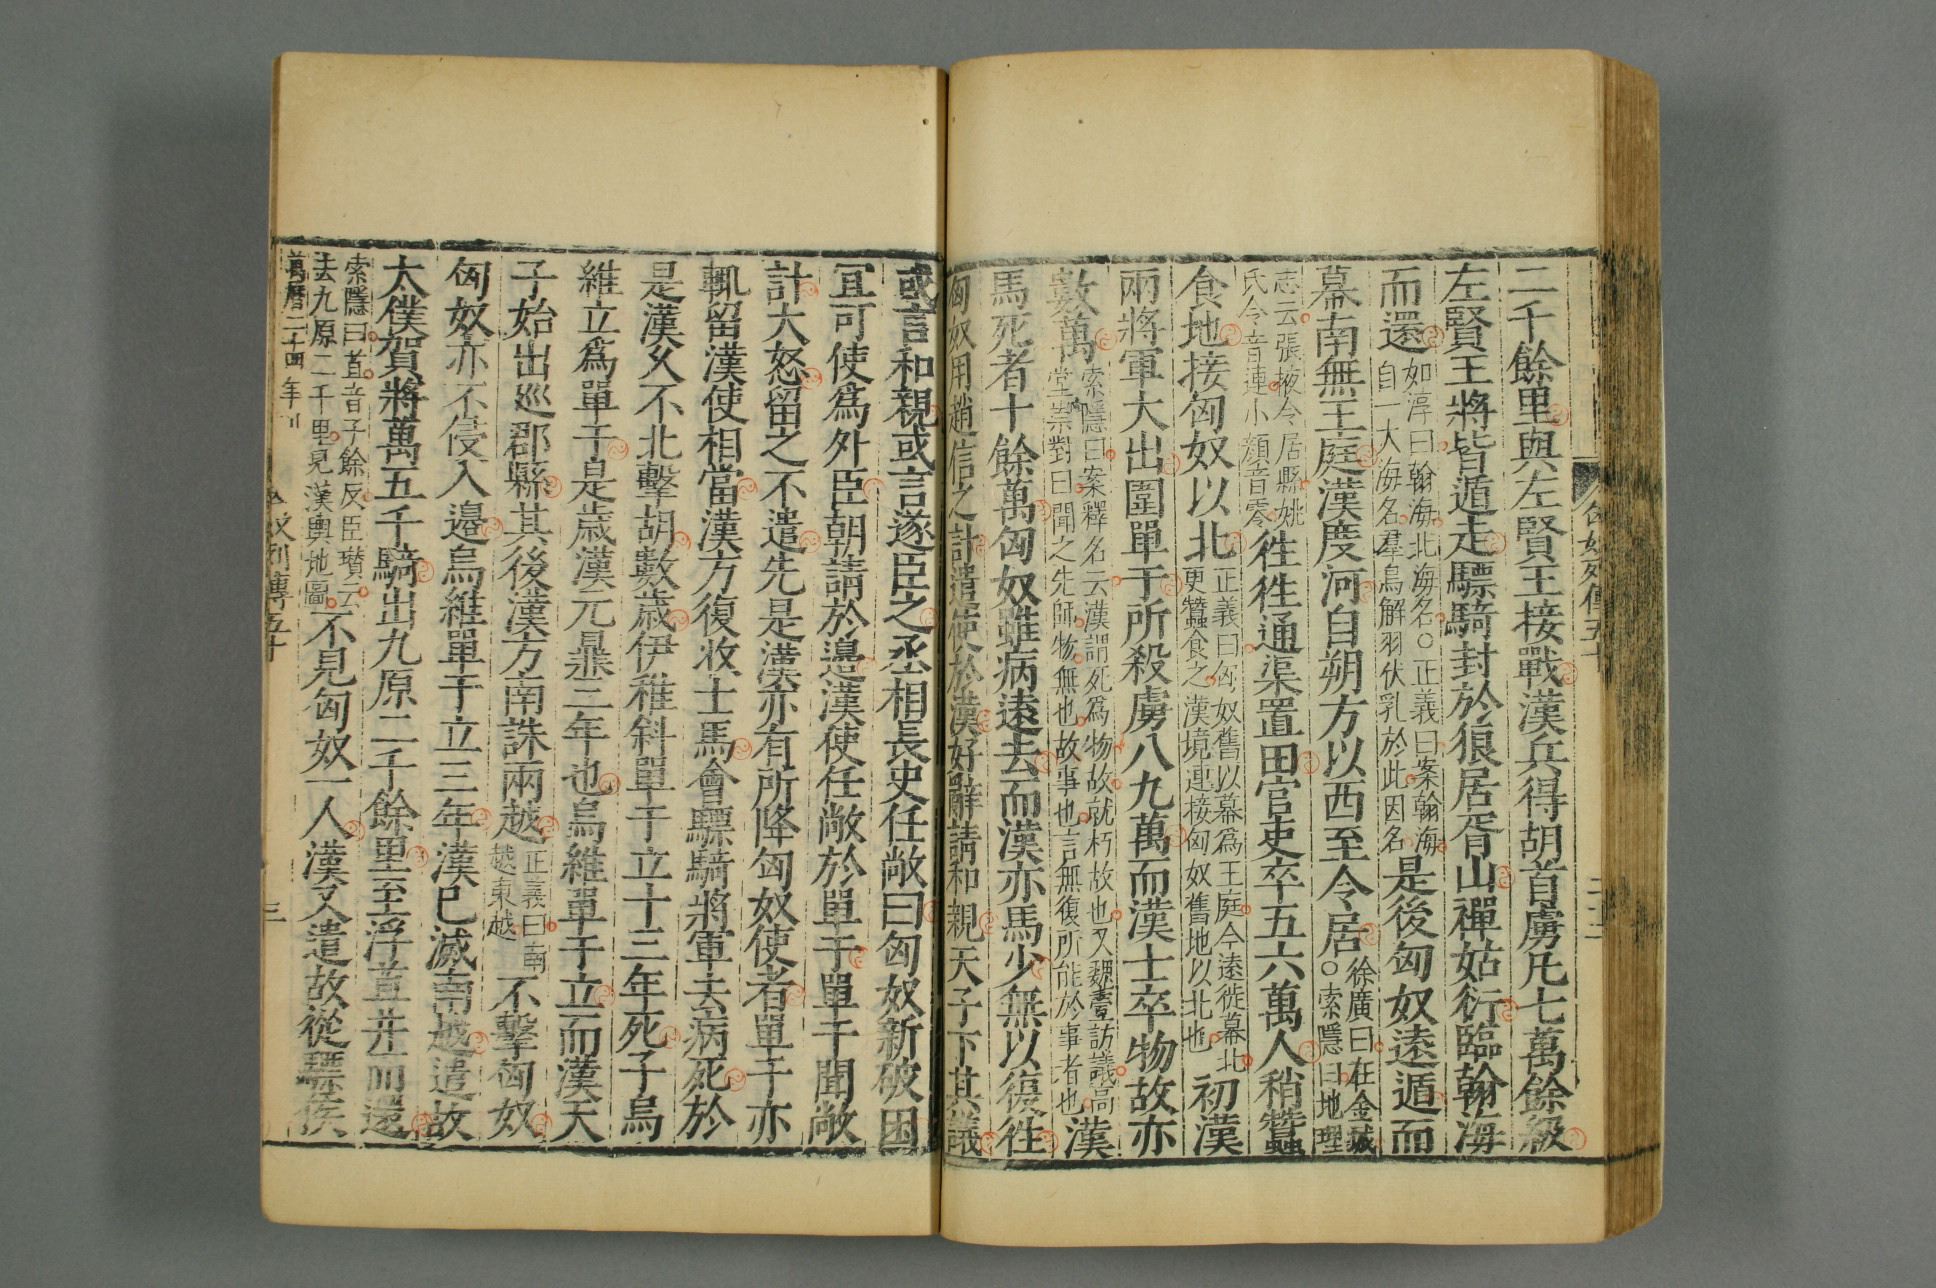 二千餘里與左賢王接戰漢兵得胡首虜凡七萬餘級
左賢王將皆遁走驃騎封於狼居胥山禪姑衍臨翰海
而還如淳曰翰海北海名○正義曰案翰海自一大海名羣鳥解羽伏乳於此因名是後匈奴遠遁而
幕南無王庭漢度河自朔方以西至令居徐廣曰在金城○索隱曰地理
志云張掖令居縣姚氏令音連小顏音零徃徃通渠置田官吏卒五六萬人稍蠶
食地接匈奴以北正義曰匈奴舊以幕爲王庭今遠徙幕北更蠶食之漢境連接匈奴舊地以北也初漢
兩將軍大出圍單于所殺虜八九萬而漢士卒物故亦
數萬索隱曰案釋名云漢謂死爲物故就朽故也又魏臺訪議高堂崇對曰聞之先師物無也故事也言無復所能於事者也漢
馬死者十餘萬匈奴雖病遠去而漢亦馬少無以復徃
匈奴用趙信之計遣使於漢好辭請和親天子下其議
或言和親或言遂臣之丞相長史任敞曰匈奴新破困
宜可使爲外臣朝請於邊漢使任敞於單于單于聞敞
計大怒留之不遣先是漢亦有所降匈奴使者單于亦
輒留漢使相當漢方復收士馬會驃騎將軍去病死於
是漢久不北擊胡數歲伊稚斜單于立十三年死子烏
維立爲單于是歲漢元鼎三年也烏維單于立而漢天
子始出巡郡縣其後漢方南誅兩越正義曰南越東越不擊匈奴
匈奴亦不侵入邊烏維單于立三年漢已滅南越遣故
太僕賀將萬五千騎出九原二千餘里至浮苴井而還
索隱曰苴音子餘反臣瓚云去九原二千里見漢輿地圖不見匈奴一人漢又遣故從驃侯
萬曆二十四年刊
匈奴列傳五十